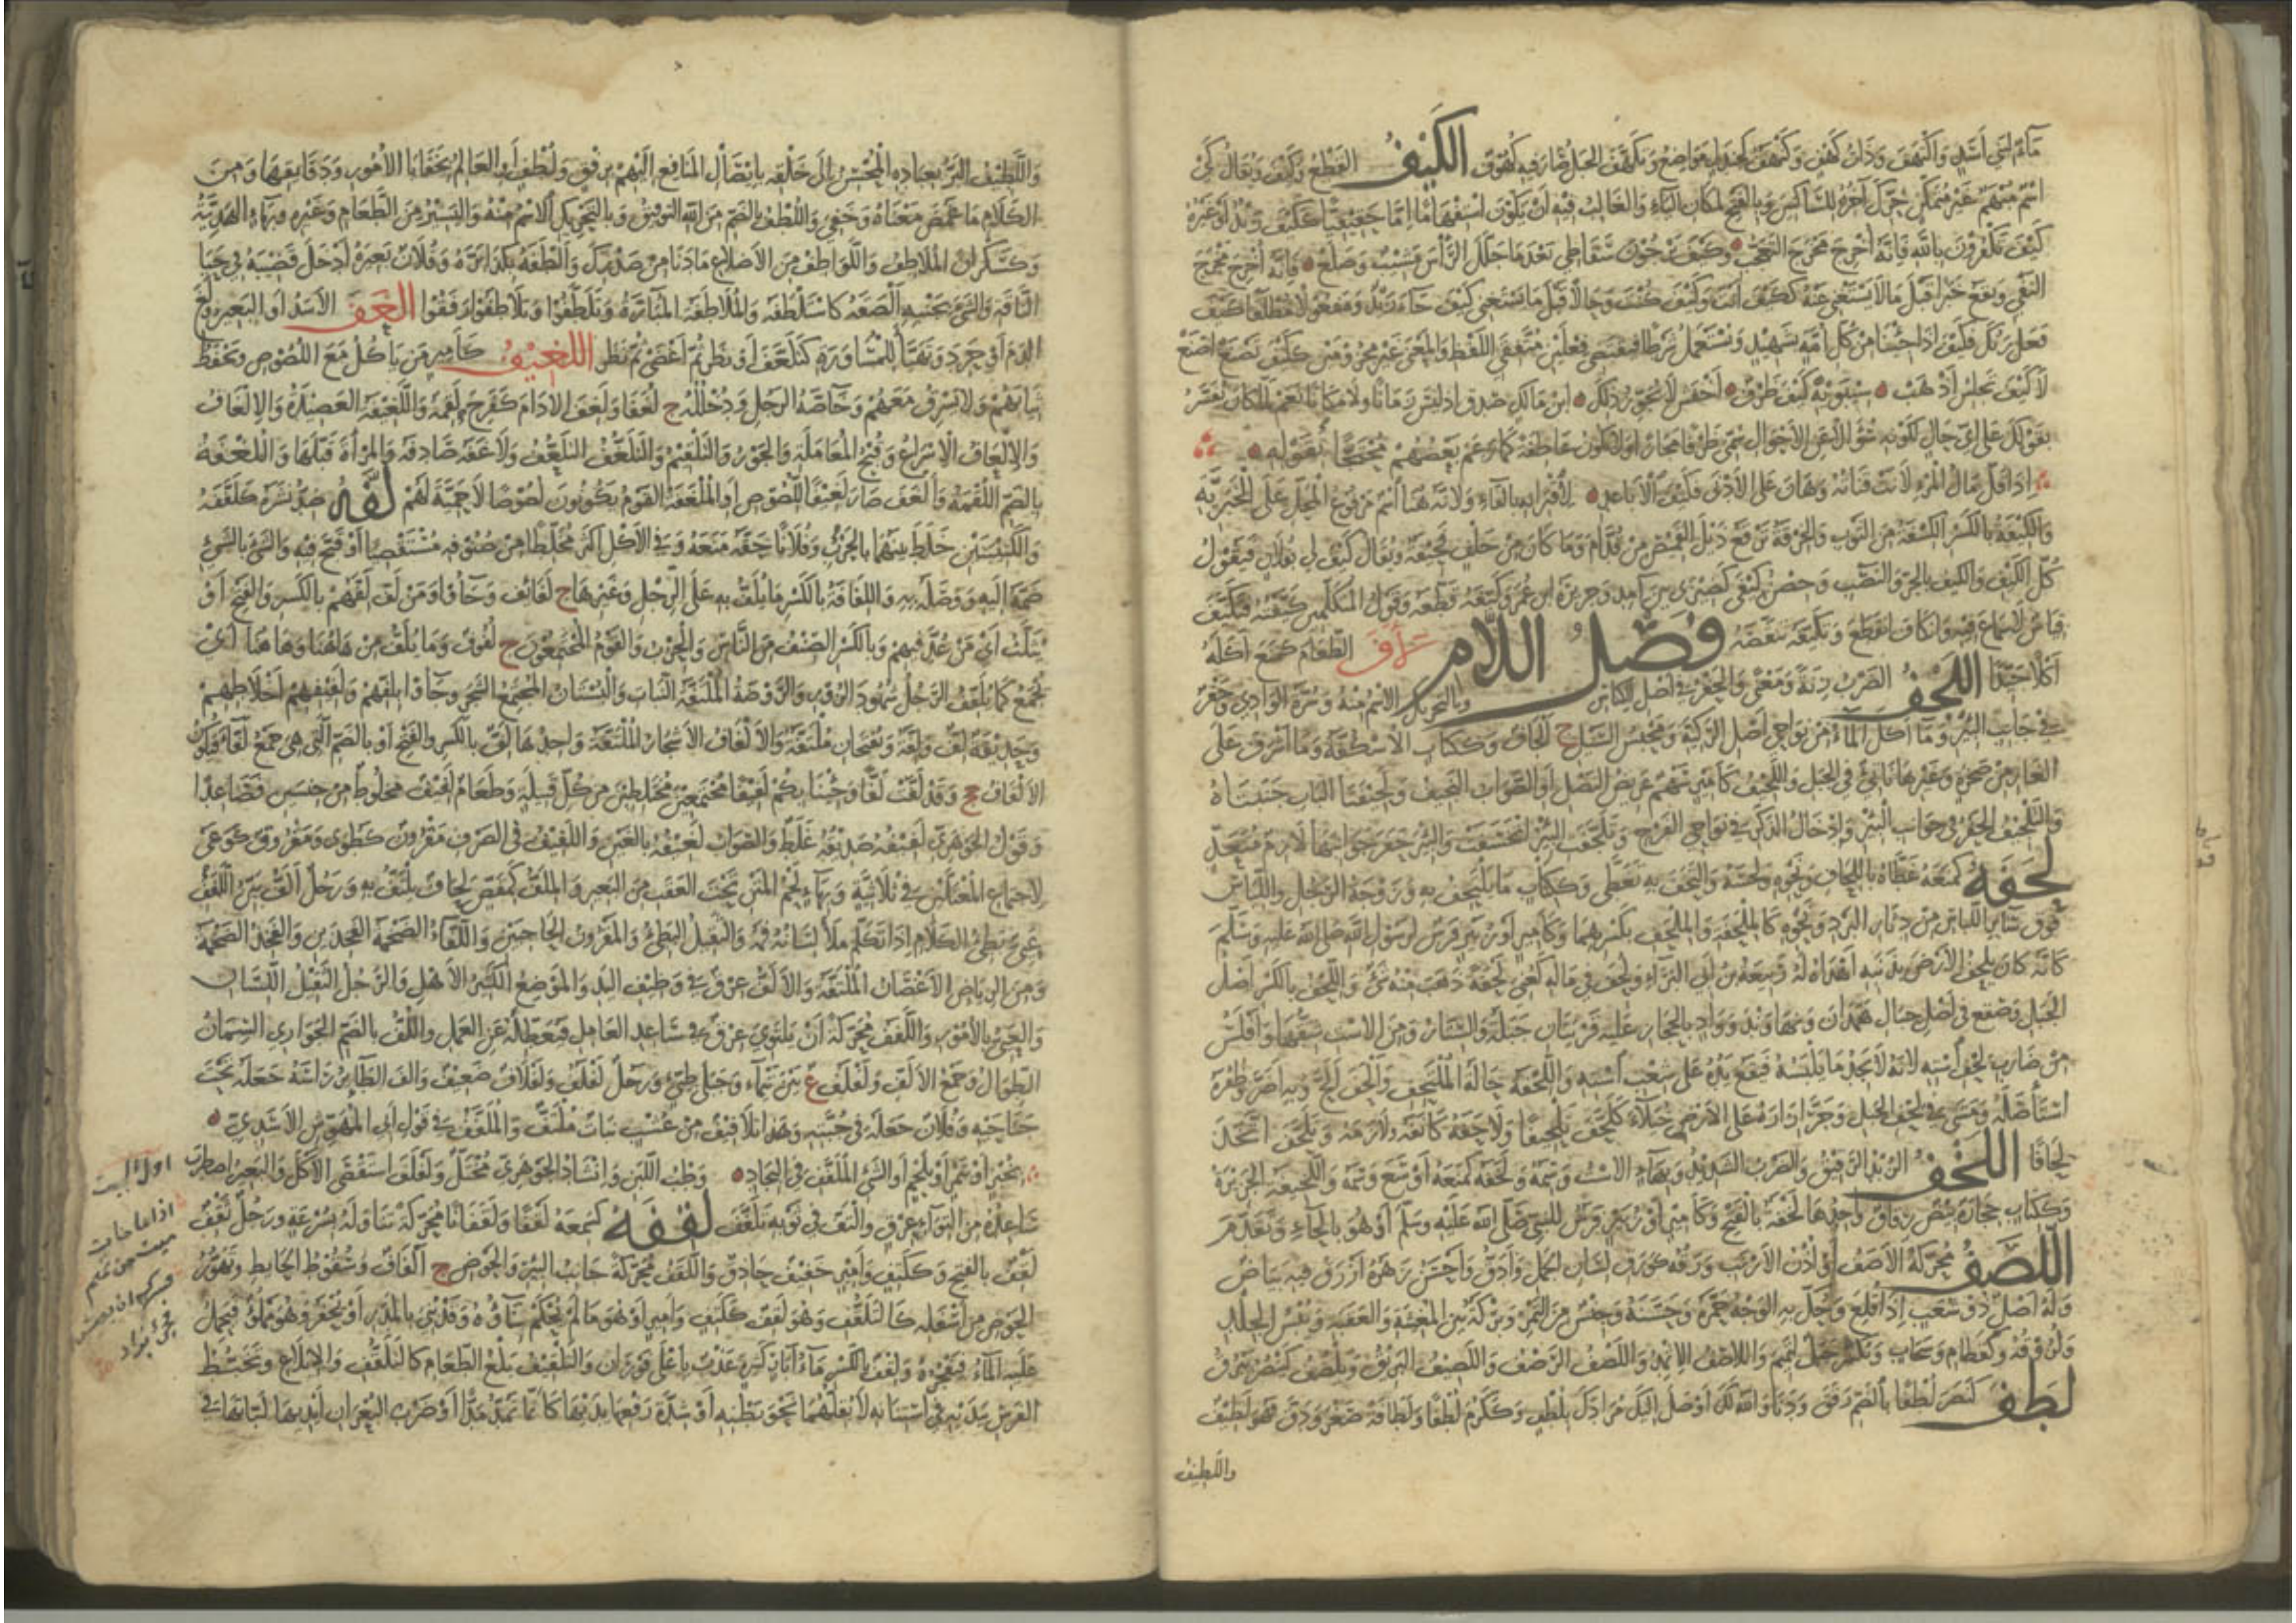 الكَيْفُ القَطْعُ وكَيْفَ ويُقالُ كَيْ
اسْمٌ مُبْهَمٌ غَيْرُ مُتَمَكِّنٍ حُرِّكَ آخِرُهُ للسَّاكِنَيْنِ وبالفَتْحِ لمكانِ الياءِ والغالِبُ فيه أن يكونَ اسْتِفْهاماً إمَّا حَقِيقِيّاً ككَيْفَ زَيْدٌ أو غَيْرَهُ
كَيْفَ تَكْفُرونَ باللهِ فإنَّه أُخْرِجَ مُخْرَجَ التَّعَجُّبِ وكَيْفَ يَرْجُونَ سِقَاطِي بَعْدَما جَلَّلَ الرَّأْسَ مَشِيبٌ وصَلَعْ فإنَّه أُخْرِجَ مُخْرَجَ
النَّفْيِ ويَقَعُ خَبَراً قَبْلَ ما لا يَسْتَغْنِي عنه ككَيْفَ أنتَ وكَيْفَ كُنْتَ وحالاً قَبْلَ ما يَسْتَغْنِي كَيْفَ جاءَ زَيْدٌ ومَفْعولاً مُطْلَقاً كَيْفَ
فَعَلَ رَبُّكَ فَكَيْفَ إذا جِئْنا من كُلِّ أُمَّةٍ بشَهِيدٍ ويُسْتَعْمَلُ شَرْطاً فيَقْتَضِي فِعْلَيْنِ مُتَّفِقَيِ اللَّفْظِ والمَعْنَى غَيْرَ مَجْزومَيْنِ ككَيْفَ تَصْنَعُ أصْنَعُ
لا كَيْفَ تَجْلِسُ أذْهَبُ سِيبَوَيْهِ كَيْفَ ظَرْفٌ الأخْفَشُ لا يُجَوِّزُ ذلك ابنُ مالِكٍ صَدَقَ إذ ليس زَماناً ولا مَكاناً نَعَمْ لمَّا كان يُفَسَّرُ
بقَوْلِكَ على أيِّ حالٍ لكَوْنِه سُؤالاً عن الأحْوالِ سُمِّيَ ظَرْفاً مَجازاً ولا تكونُ عاطِفةً كما زَعَمَ بَعْضُهُم مُحْتَجّاً بقَوْلِه
إذا قَلَّ مالُ المَرْءِ لانَتْ قَناتُهُ وهانَ على الأدْنَى فكَيْفَ الأباعِدِ لاقْتِرانِه بالفاءِ ولأنَّه هُنا اسْمٌ مَرْفوعُ المَحَلِّ على الخَبَرِيَّةِ
والكِيفَةُ بالكسرِ الكِسْفَةُ من الثَّوْبِ والخِرْقَةُ تَرْقَعُ ذَيْلَ القَميصِ من قُدَّامُ وما كان من خَلْفُ فحِيفَةٌ ويُقالُ كَيْفَ لي بفُلانٍ فتَقولُ
كُلُّ الكَيْفِ والكَيْفَ بالجَرِّ والنَّصْبِ وحِصْنُ كِيفَى كضِيزَى بينَ آمِدَ وجَزيرَةِ ابنِ عُمَرَ وكَيَّفَهُ قَطَعَهُ وقَوْلُ المُتَكَلِّمينَ كَيَّفْتُهُ فتَكَيَّفَ
قِياسٌ لا سَماعَ فيه وانْكافَ انْقَطَعَ وتَكَيَّفَهُ تَنَقَّصَهُ فَصْلُ اللَّام الطَّعامَ كمَنَعَ أكَلَهُ
أكْلاً جَيِّداً اللَّجْفُ الضَّرْبُ زِنَةً ومَعْنًى والحَفْرُ في أصْلِ الكِناسِ وبالتَّحْرِيكِ الاسْمُ منه وسُرَّةُ الوادِي وحَفْرٌ
في جانِبِ البِئْرِ وما أكَلَ الماءُ من نَواحِي أصْلِ الرَّكِيَّةِ ومَحْبِسُ السَّيْلِ ج ألْجافٌ وككِتابٍ الأُسْكُفَّةُ وما أشْرَفَ على
الغارِ من صَخْرَةٍ وغيرِها ناتِئٌ في الجَبَلِ واللَّجِيفُ كأَمِيرٍ سَهْمٌ عَريضُ النَّصْلِ أو الصَّوابُ النَّجِيفُ ولَجِيفَتا البابِ جَنْبَتاهُ
والتَّلْجِيفُ الحَفْرُ في جَوانِبِ البِئْرِ وإدْخالُ الذَّكَرِ في نَواحِي الفَرْجِ وتَلَجَّفَتِ البِئْرُ انْخَسَفَتْ والبِئْرَ حَفَرَ جَوانِبَها لازِمٌ مُتَعَدٍّ
لَحَفَهُ كمَنَعَهُ غَطَّاهُ باللِّحافِ ونَحْوِهِ ولَحِسَهُ والْتَحَفَ به تَغَطَّى وككِتابٍ ما يُلْتَحَفُ به وزَوْجَةُ الرَّجُلِ واللِّباسُ
فَوْقَ سائِرِ اللِّباسِ من دِثارِ البَرْدِ ونَحْوِهِ كالمِلْحَفَةِ والمِلْحَفِ بكَسْرِهِما وكأَمِيرٍ أو زُبَيْرٍ فَرَسٌ لرَسُولِ اللهِ صَلَّى اللهُ عليه وسَلَّمَ
كأنَّه كان يَلْحَفُ الأرضَ بذَنَبِه أهْداهُ لَهُ رَبيعَةُ بنُ أبي البَراءِ ولُحِفَ في مالِه كعُنِيَ لَحْفَةً ذَهَبَ منه شَيْءٌ واللِّحْفُ بالكسرِ أصْلُ
الجَبَلِ وصُقْعٌ في أصْلِ جِبالِ هَمَذانَ ونَهاوَنْدَ ووادٍ بالحِجازِ عليه قَرْيَتانِ جَبَلَةُ والسِّتارُ ومن الاسْتِ شِقُّها وأفْلَسُ
من ضارِبِ لِحْفِ اسْتِه لأنَّه لا يَجِدُ ما يَلْبَسُهُ فتَقَعُ يَدُهُ على شُعَبِ اسْتِه واللِّحْفَةُ حالَةُ المُلْتَحِفِ وألْحَفَ ألَحَّ وبه أضَرَّ وظُفْرَهُ
اسْتَأْصَلَهُ ومَشَى في لِحْفِ الجَبَلِ وجَرَّ إزارَهُ على الأرضِ خُيَلاءَ كلَحَّفَ تَلْحِيفاً ولاحَفَهُ كانَفَهُ ولازَمَهُ وتَلَحَّفَ اتَّخَذَ
لِحافاً اللَّخْفُ الزُّبْدُ الرَّقيقُ والضَّرْبُ الشَّديدُ وبهاءٍ الاسْتُ وسِمَةٌ ولَخَفَهُ كمَنَعَهُ أوْسَعَ وَسْمَهُ واللَّخِيفَةُ الخَزِيرَةُ
وككِتابٍ حِجارَةٌ بِيضٌ رِقاقٌ واحِدُها لَخْفَةٌ بالفَتْحِ وكأَمِيرٍ أو زُبَيْرٍ فَرَسٌ للنَّبيِّ صَلَّى اللهُ عَلَيْهِ وسَلَّمَ أو هو بالحاءِ وتَقَدَّمَ
اللَّصَفُ مُحَرَّكَةً الأصَفُ أو أُذُنُ الأرْنَبِ وَرَقُه كوَرَقِ لِسانِ الحَمَلِ وأدَقُّ وأحْسَنُ زَهْرُهُ أزْرَقُ فيه بَياضٌ
وله أصْلٌ ذو شُعَبٍ إذا قُلِعَ وحُكَّ به الوَجْهُ حَمَّرَهُ وحَسَّنَهُ وجِنْسٌ من التَّمْرِ وبِرْكَةٌ بينَ المُغِيثَةِ والعَقَبَةِ ويُبْسُ الجِلْدِ
ولُزوقُهُ وكقَطامِ وسَحابٍ وتُكْسَرُ جَبَلٌ لتَميمٍ واللاَّصِفُ الإِثْمِدُ واللَّصْفُ الرَّصْفُ واللَّصِيفُ البَرِيقُ ويَلْصُفُ كيَنْصُرُ يَبْرُقُ
لَطَفَ كنَصَرَ لُطْفاً بالضَّمِّ رَفَقَ ودَنا واللهُ لَكَ أوْصَلَ إليك مُرادَكَ بلُطْفٍ وككَرُمَ لُطْفاً ولَطافَةً صَغُرَ ودَقَّ فهو لَطِيفٌ
واللَّطِيفُ
واللَّطِيفُ البَرُّ بعِبادِهِ المُحْسِنُ إلى خَلْقِه بإيْصالِ المَنافِعِ إلَيْهِم برِفْقٍ ولُطْفٍ أو العالِمُ بخَفايا الأُمورِ ودَقائِقِها ومن
الكَلامِ ما غَمُضَ مَعْناهُ وخَفِيَ واللُّطْفُ بالضَّمِّ من اللهِ التَّوْفيقُ وبالتَّحْرِيكِ الاسْمُ منه واليَسيرُ من الطَّعامِ وغيرِه وبهاءٍ الهَدِيَّةُ
وكسَكْرانَ المُلاطِفُ واللَّواطِفُ من الأضْلاعِ ما دَنا من صَدْرِكَ وألْطَفَهُ بكذا بَرَّهُ وفُلانٌ بَعِيرَهُ أدْخَلَ قَضِيبَهُ في حَيا
النَّاقَةِ والشَّيْءَ بجَنْبِه ألْصَقَهُ كاسْتَلْطَفَهُ والمُلاطَفَةُ المُبارَّةُ وتَلَطَّفوا وتَلاطَفوا رَفَقوا الغَفَ الأسَدُ أو البَعِيرُ ولَغَ
الدَّمَ أو حَرَدَ وتَهَيَّأَ للمُساوَرَةِ كتَلَعَّفَ أو نَظَرَ ثُمَّ أغْضَى ثُمَّ نَظَرَ اللَّغِيفُ كأَمِيرٍ مَن يأكُلُ مع اللُّصُوصِ ويَحْفَظُ
ثِيابَهُم ولا يَسْرِقُ مَعَهُم وخاصَّةُ الرَّجُلِ ودُخْلُلُهُ ج لُغَفاءُ ولَغِفَ الإدامَ كفَرِحَ لَقِمَهُ واللَّغيفَةُ العَصيدَةُ والإلْغافُ
والإلْعافُ الإسْراعُ وقُبْحُ المُعامَلَةِ والجَوْرُ والتَّلْقِيمُ والتَّلَغُّفُ التَّلَعُّفُ ولاغَفَهُ صادَقَهُ والمَرْأةَ قَبَّلَها واللُّغْفَةُ
بالضَّمِّ اللُّقْمَةُ وألْغَفَ صارَ لَغيفاً للُّصُوصِ أو المُلْغَفَةُ القَوْمُ يكونونَ لُصوصاً لا حَمِيَّةَ لَهُم لَفَّهُ ضِدُّ نَشَرَهُ كلَفَّفَهُ
والكَتيبَتَيْنِ خَلَطَ بَيْنَهُما بالحَرْبِ وفُلاناً حَقَّهُ مَنَعَهُ وفي الأكْلِ أكْثَرَ مُخَلِّطاً من صُنوفِه مُسْتَقْصِياً أو قَبَّحَ فيه والشَّيْءَ بالشَّيْءِ
ضَمَّهُ إليه ووَصَلَهُ به واللِّفافَةُ بالكسرِ ما يُلَفُّ به على الرِّجْلِ وغيرِها ج لَفائِفُ وجاؤوا ومَن لَفَّ لَفَّهُم بالكسرِ والفَتْحِ أو
يُثَلَّثُ أي مَن عُدَّ فيهم وبالكسرِ الصِّنْفُ من النَّاسِ والحِزْبُ والقَوْمُ المُجْتَمِعُونَ ج لُفوفٌ وما يُلَفُّ من هاهُنا وهاهُنا أي
يُجْمَعُ كما يُلَفِّفُ الرَّجُلُ شُهودَ الزُّورِ والرَّوْضَةُ المُلْتَفَّةُ النَّباتِ والبُسْتانُ المُجْتَمِعُ الشَّجَرِ وجاؤوا بلَفِّهِم ولَفيفِهِم أخْلاطِهِم
وحَديقَةٌ لِفٌّ ولَفَّةٌ ويُفْتَحانِ مُلْتَفَّةٌ والألْفافُ الأشْجارُ المُلْتَفَّةُ واحِدُها لِفٌّ بالكسرِ والفَتْحِ أو بالضَّمِّ الَّتي هي جَمْعُ لَفَّاءَ فيكونُ
الألْفافُ جج وقد لَفَّتْ لَفّاً وجِئْنا بِكُم لَفيفاً مُجْتَمِعينَ مُخْتَلِطينَ من كُلِّ قَبيلَةٍ وطَعامٌ لَفيفٌ مَخْلوطٌ من جِنْسَيْنِ فَصاعِداً
وقَوْلُ الجَوْهَرِيِّ لَفيفُهُ صَديقُهُ غَلَطٌ والصَّوابُ لَغيفُهُ بالغَيْنِ واللَّفيفُ في الصَّرْفِ مَقْرونٌ كطَوَى ومَفْروقٌ كوَعَى
لاجْتِماعِ المُعْتَلَّيْنِ في ثُلاثِيِّه وبهاءٍ لَحْمُ المَتْنِ تَحْتَ العَقَبِ من البَعيرِ والمِلَفُّ كمِقَصٍّ لِحافٌ يُلْتَفُّ به ورَجُلٌ ألَفُّ بَيِّنُ اللَّفَفِ
عَيِيٌّ بَطِيءُ الكَلامِ إذا تَكَلَّمَ مَلأَ لِسانُهُ فَمَهُ والثَّقيلُ البَطِيءُ والمَقْرونُ الحاجِبَيْنِ واللَّفَّاءُ الضَّخْمَةُ الفَخِذَيْنِ والفَخِذُ الضَّخْمَةُ
ومن الرِّياضِ الأغْصانُ المُلْتَفَّةُ والألَفُّ عِرْقٌ في وَظيفِ اليَدِ والمَوْضِعُ الكَثيرُ الأهْلِ والرَّجُلُ الثَّقيلُ اللِّسانِ
والعَيِيُّ بالأُمورِ واللَّفَفُ مُحَرَّكَةً أن يَلْتَوِيَ عِرْقٌ في ساعِدِ العامِلِ فيُعَطِّلَهُ عن العَمَلِ واللُّفُّ بالضَّمِّ الجَواري السِّمانُ
الطِّوالُ وجَمْعُ الألَفِّ ولَفْلَفٌ ع بينَ تَيْماءَ وجَبَلَيْ طَيِّئٍ ورَجُلٌ لَفْلَفٌ ولَفْلافٌ ضَعيفٌ وألَفَّ الطَّائِرُ رَأْسَهُ جَعَلَهُ تَحْتَ
جَناحَيْهِ وفُلانٌ جَعَلَهُ في جُبَّتِهِ وهنا تَلافيفُ من عُشْبٍ نَباتٌ مُلْتَفٌّ والمُلَفَّفُ في قَوْلِ أبي المُهَوِّشِ الأسَدِيِّ
بخُبْزٍ أو بتَمْرٍ أو بلَحْمٍ أو الشَّيْءِ المُلَفَّفِ في البِجادِ وَطْبُ اللَّبَنِ وإنْشادُ الجَوْهَرِيِّ مُخْتَلٌّ ولَفْلَفَ اسْتَقْصَى الأكْلَ والبَعيرُ اضْطَرَبَ
ساعِدُهُ من الْتِواءِ عِرْقٍ والْتَفَّ في ثَوْبِه تَلَفَّفَ لَقِفَهُ كسَمِعَهُ لَقْفاً ولَقَفاناً مُحَرَّكَةً تَناوَلَهُ بسُرْعَةٍ ورَجُلٌ ثَقْفٌ
لَقْفٌ بالفَتْحِ وككَتِفٍ وأَميرٍ خَفيفٌ حاذِقٌ واللَّقَفُ مُحَرَّكَةً جانِبُ البِئْرِ والحَوْضِ ج ألْقافٌ وسُقوطُ الحائِطِ وتَهَوُّرُ
الحَوْضِ من أسْفَلِه كالتَّلَقُّفِ وهو لَقِفٌ ككَتِفٍ وأَميرٍ أو هو ما لم يُحْكَمْ بِناؤُهُ وقد بُنِيَ بالمَدَرِ أو يُحْفَرُ وهو مَمْلُوءٌ فيَحْمِلُ
عليه الماءُ فيُفَجِّرُهُ ولِقْفٌ بالكسرِ ماءٌ آبارٌ كَثيرَةٌ عَذْبٌ بأعْلَى قَوْرانَ والتَّلْقيفُ بَلْعُ الطَّعامِ كالتَّلَقُّفِ والإبْلاعُ وتَخَبُّطُ
الفَرَسِ بيَدَيْهِ في اسْتِنانِه لا يُقِلُّهُما نَحْوَ بَطْنِه أو شِدَّةُ رَفْعِها يَدَيْها كأنَّما تَمُدُّ مَدّاً أو ضَرْبُ البُعْرانِ أيْدِيَها لَبَّاتِها في
اول البيت
اذا ما مات
ميت من تميم
فسرك ان يعيش
فجئ بزاد